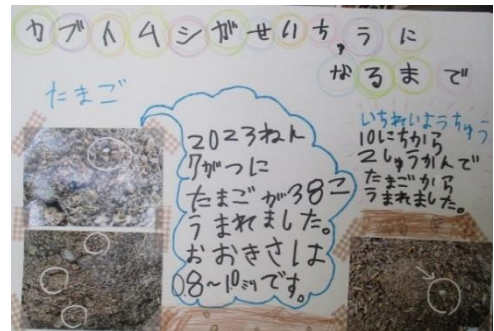 カブトムシがせいちゅうに
なるまで
たまご
2023ねん
7がつに
たまごが38こ
うまれました。
おおきさは
0.8〜1.0㍉です。
いちれいようちゅう
10にちから
2しゅうかんで
たまごから
うまれました。